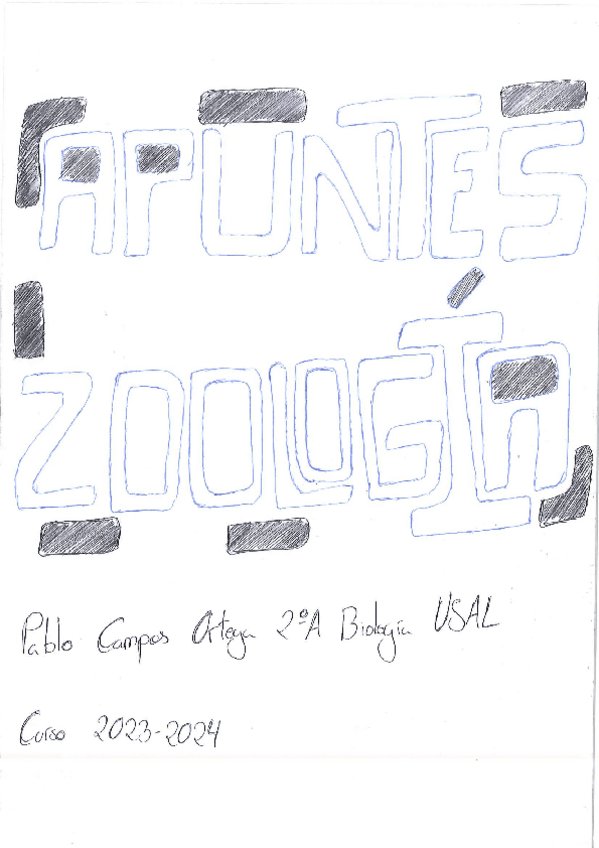 APUNTES
ZOOLOGÍA
Pablo Campos Ortega 2ºA Biología USAL
Curso 2023-2024